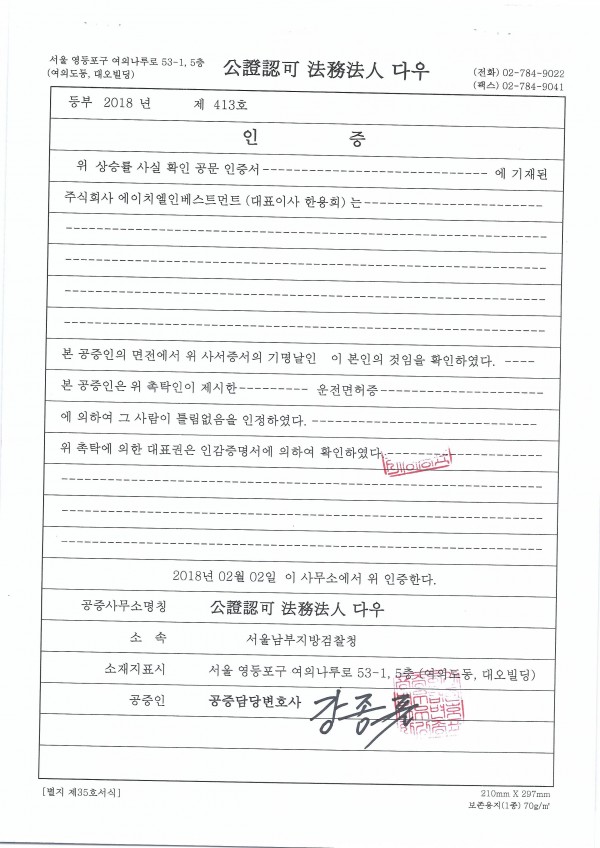 서울 영등포구 여의나루로 53-1, 5층
(여의도동, 대오빌딩)
公證認可 法務法人 다우
(전화) 02-784-9022
(팩스) 02-784-9041
등부 2018 년 제 413호
인 증
위 상승률 사실 확인 공문 인증서------------------------------ 에 기재된
주식회사 에이치엘인베스트먼트 (대표이사 한용희) 는------------------------
본 공증인의 면전에서 위 사서증서의 기명날인 이 본인의 것임을 확인하였다. ----
본 공증인은 위 촉탁인이 제시한--------- 운전면허증----------------------
에 의하여 그 사람이 틀림없음을 인정하였다. ------------------------------
위 촉탁에 의한 대표권은 인감증명서에 의하여 확인하였다.--------------------
2018년 02월 02일 이 사무소에서 위 인증한다.
공증사무소명칭 公證認可 法務法人 다우
소 속 서울남부지방검찰청
소재지표시 서울 영등포구 여의나루로 53-1, 5층 (여의도동, 대오빌딩)
공증인 공증담당변호사
[별지 제35호서식]
210mm X 297mm
보존용지(1종) 70g/㎡